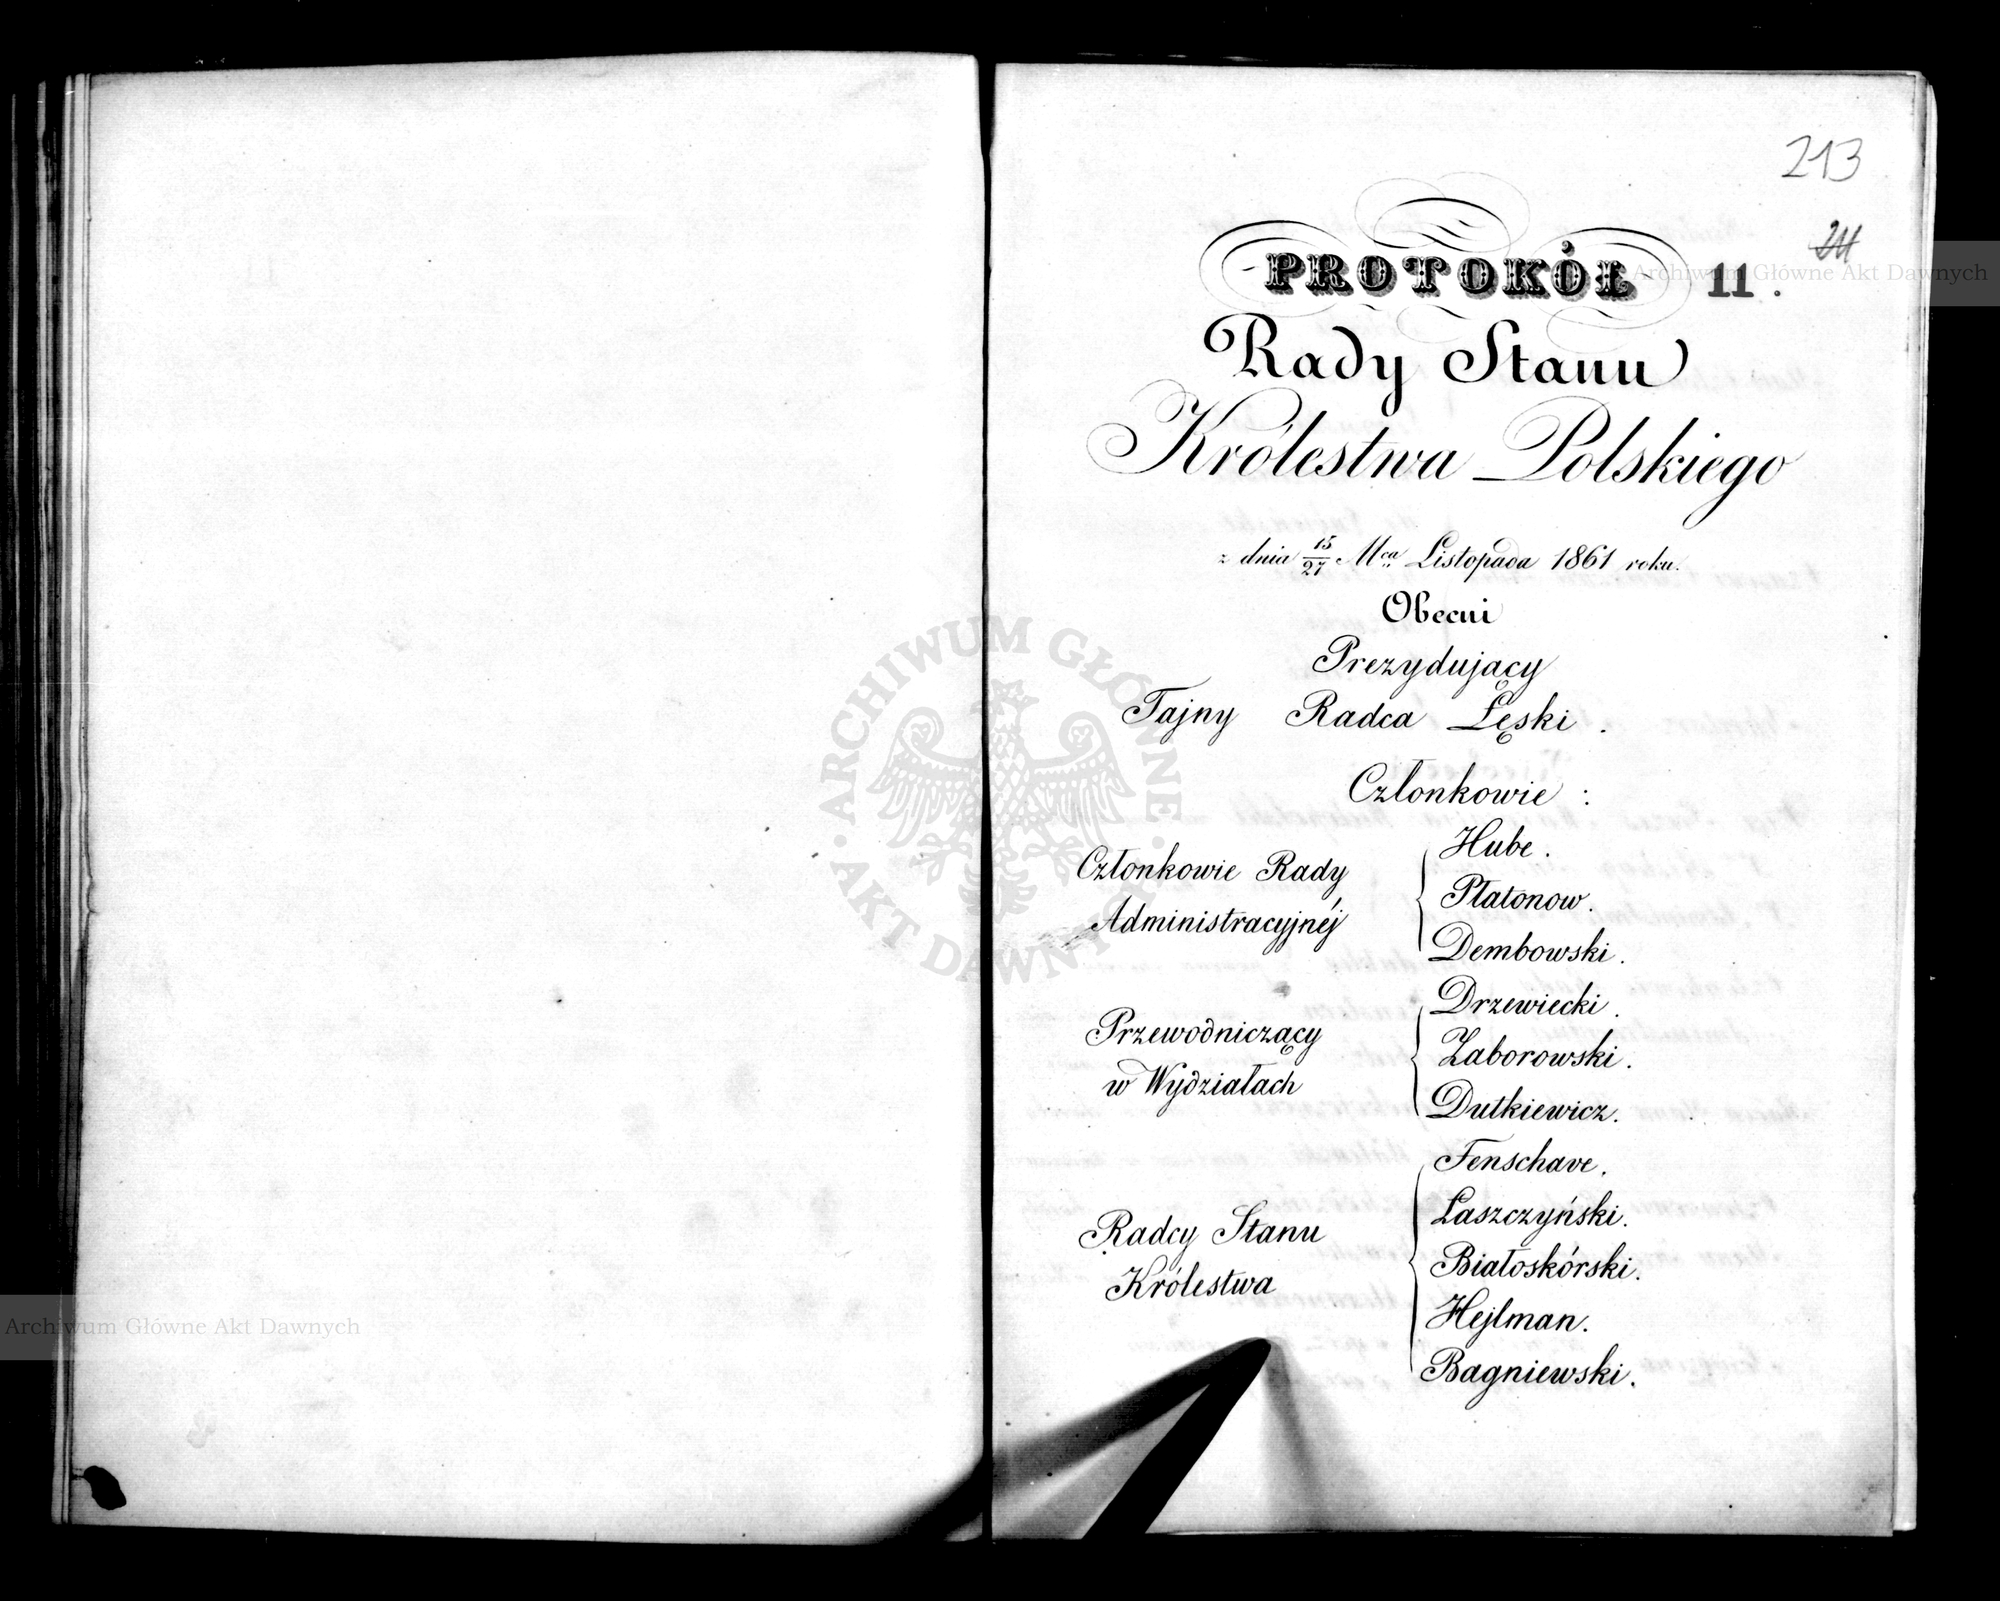 213
211
PROTOKÓŁ 11.
Rady Stanu
Królestwa Polskiego
z dnia 15/27 Mca Listopada 1861 roku.
Obecni
Prezydujący
Tajny Radca Łęski.
Członkowie :
Członkowie Rady
Administracyjnéj
Hube.
Płatonow.
Dembowski.
Przewodniczący
w Wydziałach
Drzewiecki.
Zaborowski.
Dutkiewicz.
Radcy Stanu
Królestwa
Fenschave.
Łaszczyński.
Białoskórski.
Hejlman.
Bagniewski.
ARCHIWUM GŁÓWNE AKT DAWNYCH
Archiwum Główne Akt Dawnych
Archiwum Główne Akt Dawnych